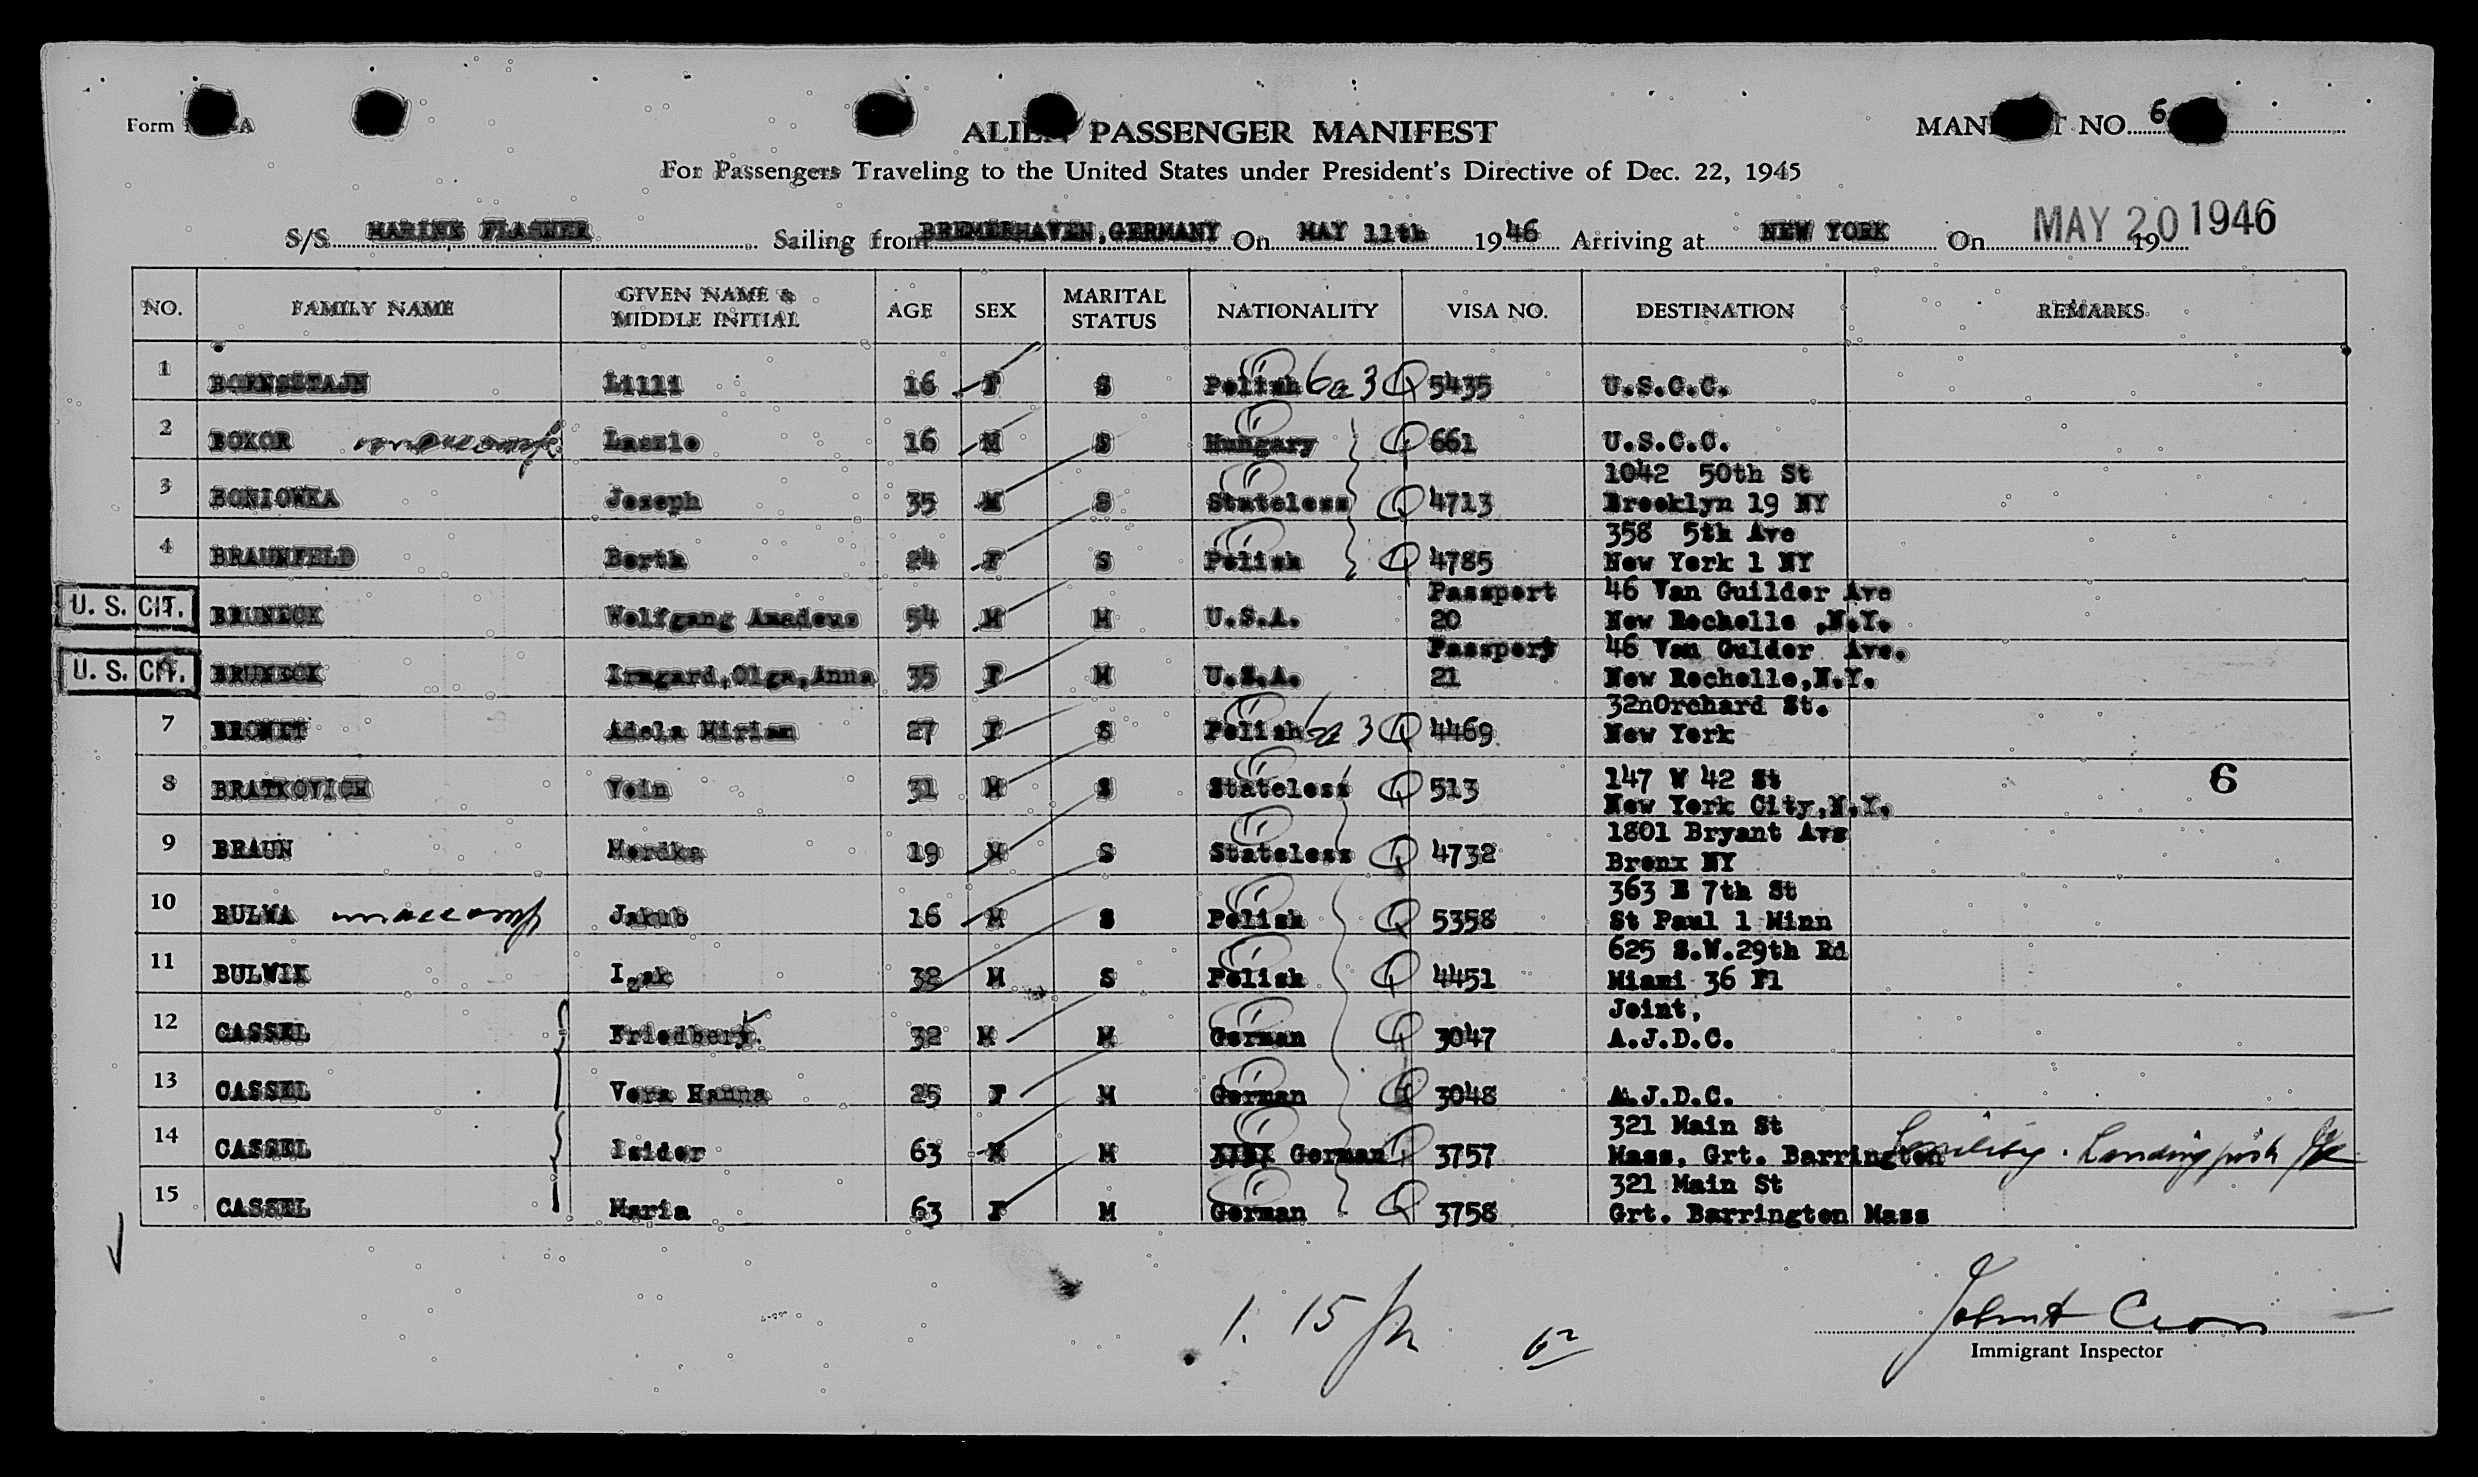 Form
ALIEN PASSENGER MANIFEST
MANIFEST NO. 6
For Passengers Traveling to the United States under President's Directive of Dec. 22, 1945
S/S MARINE FLASHER Sailing from BREMERHAVEN, GERMANY On MAY 11th 1946 Arriving at NEW YORK On MAY 20 1946 19
NO. FAMILY NAME GIVEN NAME & MIDDLE INITIAL AGE SEX MARITAL STATUS NATIONALITY VISA NO. DESTINATION REMARKS
1 BORNSZTAJN Lilli 16 F S Polish 6a3 5435 U.S.C.C.
2 BOKOR unaccomp. Laszlo 16 M S Hungary 661 U.S.C.C.
3 BONIOWKA Joseph 35 M S Stateless 4713 1042 50th St
Brooklyn 19 NY
4 BRAUNFELD Berth 24 F S Polish 4785 358 5th Ave
New York 1 NY
U. S. CIT. BRUNECK Wolfgang Amadeus 54 M M U.S.A. Passport 20 46 Van Guilder Ave
New Rochelle ,N.Y.
U. S. CIT. BRUNECK Irmgard,Olga,Anna 35 F M U.S.A. Passport 21 46 Van Gulder Ave.
New Rochelle,N.Y.
7 BROMET Adela Miriam 27 F S Polish 6a 3 4469 32nOrchard St.
New York
8 BRATKOVICH Voin 31 M S Stateless 513 147 W 42 St
New York City,N.Y.
6
9 BRAUN Mordka 19 M S Stateless 4732 1801 Bryant Ave
Bronx NY
10 BULWA unaccomp Jakub 16 M S Polish 5358 363 E 7th St
St Paul 1 Minn
11 BULWIK Izak 32 M S Polish 4451 625 S.W.29th Rd
Miami 36 Fl
12 CASSEL Friedbert 32 M M German 3047 Joint,
A.J.D.C.
13 CASSEL Vera Hanna 25 F M German 3048 A.J.D.C.
14 CASSEL Isidor 63 M M German 3757 321 Main St
Mass, Grt. Barrington Senility. Landing
15 CASSEL Maria 63 F M German 3758 321 Main St
Grt. Barrington Mass
1. 15
Immigrant Inspector